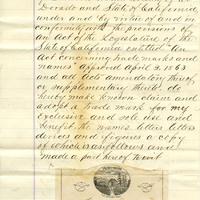 Dorado and State of California
under and by virtue of and in
conformity with the provisions of
an Act of the Legislature of the
State of California entitled "An
Act concerning trade marks and
names" Approved April 3, 1863
and all acts amendatory thereof
or supplementary thereto do
hereby make known claim and
adopt a trade mark for my
exclusive and sole use and
benefit the names letter letters
devices and figures a copy
of which is as follows and
made a part hereof to wit